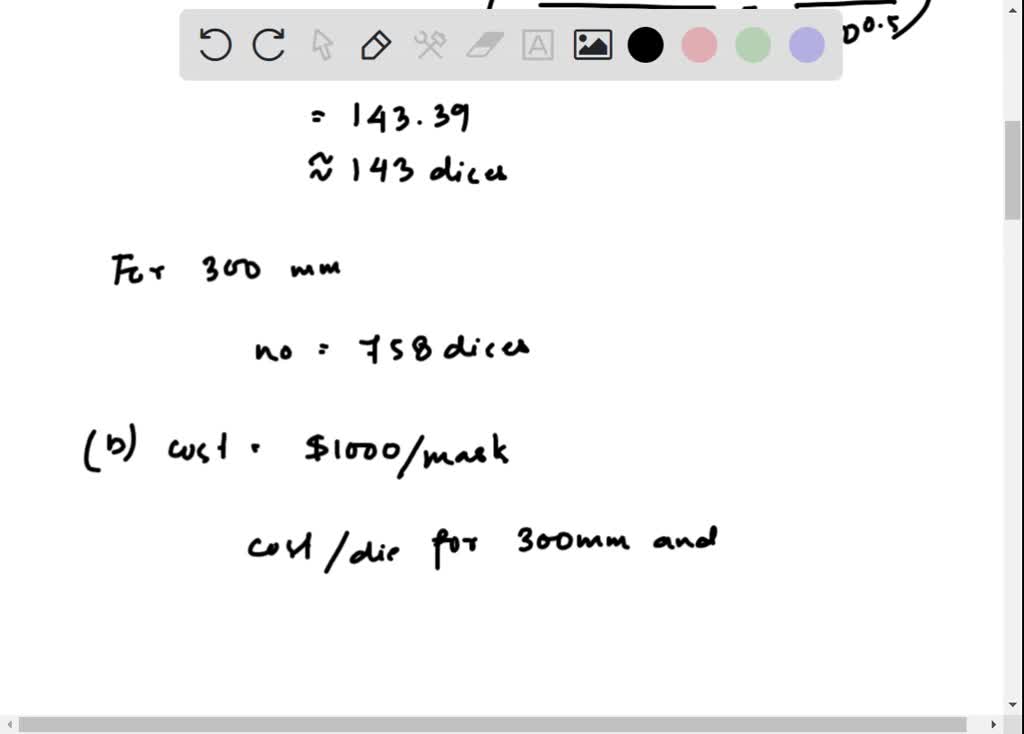 0^0.5)
= 143.39
≈ 143 dices
For 300 mm
no = 758 dices
(b) cost = $1000/mask
cost/die for 300mm and